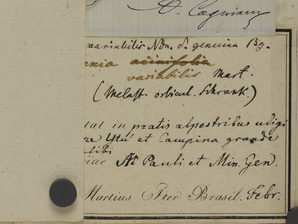 variabilis Ndn. δ. genuina Bg.
acinifolia
variabilis Mart.
(Melast. orbicul. Schrank)
tat in pratis alpestribus uligi
re Ytú et Campina grande
Sti Pauli et Min. Gen.
Martius Iter Brasil. Febr.